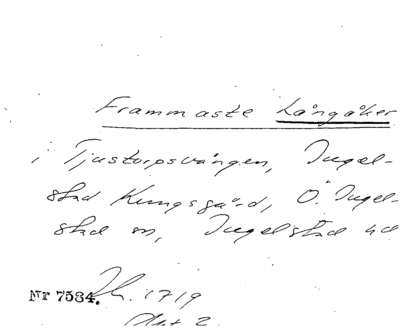 Frammaste Långåker
i Tjustorpsvången, Ingel-
stad Kungsgård, Ö. Ingel-
stad sn, Ingelstad hd
Nr 7584. Lh. 1719
Akt 2